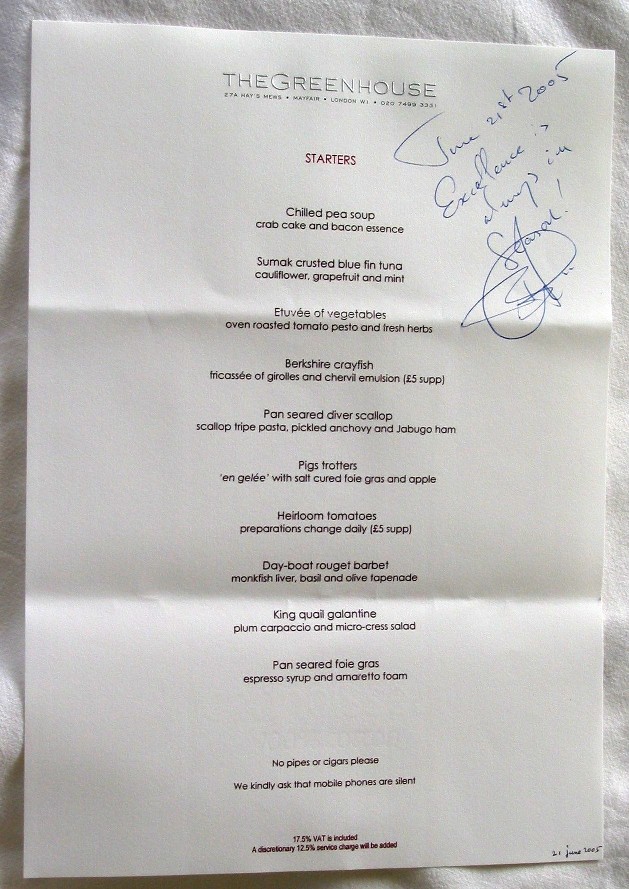 THE GREENHOUSE
27A HAY'S MEWS • MAYFAIR • LONDON W1 • 020 7499 3331
June 21st 2005
Excellence is
always in
Season!
STARTERS
Chilled pea soup
crab cake and bacon essence
Sumak crusted blue fin tuna
cauliflower, grapefruit and mint
Etuvée of vegetables
oven roasted tomato pesto and fresh herbs
Berkshire crayfish
fricassée of girolles and chervil emulsion (£5 supp)
Pan seared diver scallop
scallop tripe pasta, pickled anchovy and Jabugo ham
Pigs trotters
'en gelée' with salt cured foie gras and apple
Heirloom tomatoes
preparations change daily (£5 supp)
Day-boat rouget barbet
monkfish liver, basil and olive tapenade
King quail galantine
plum carpaccio and micro-cress salad
Pan seared foie gras
espresso syrup and amaretto foam
No pipes or cigars please
We kindly ask that mobile phones are silent
17.5% VAT is included
A discretionary 12.5% service charge will be added
21 june 2005